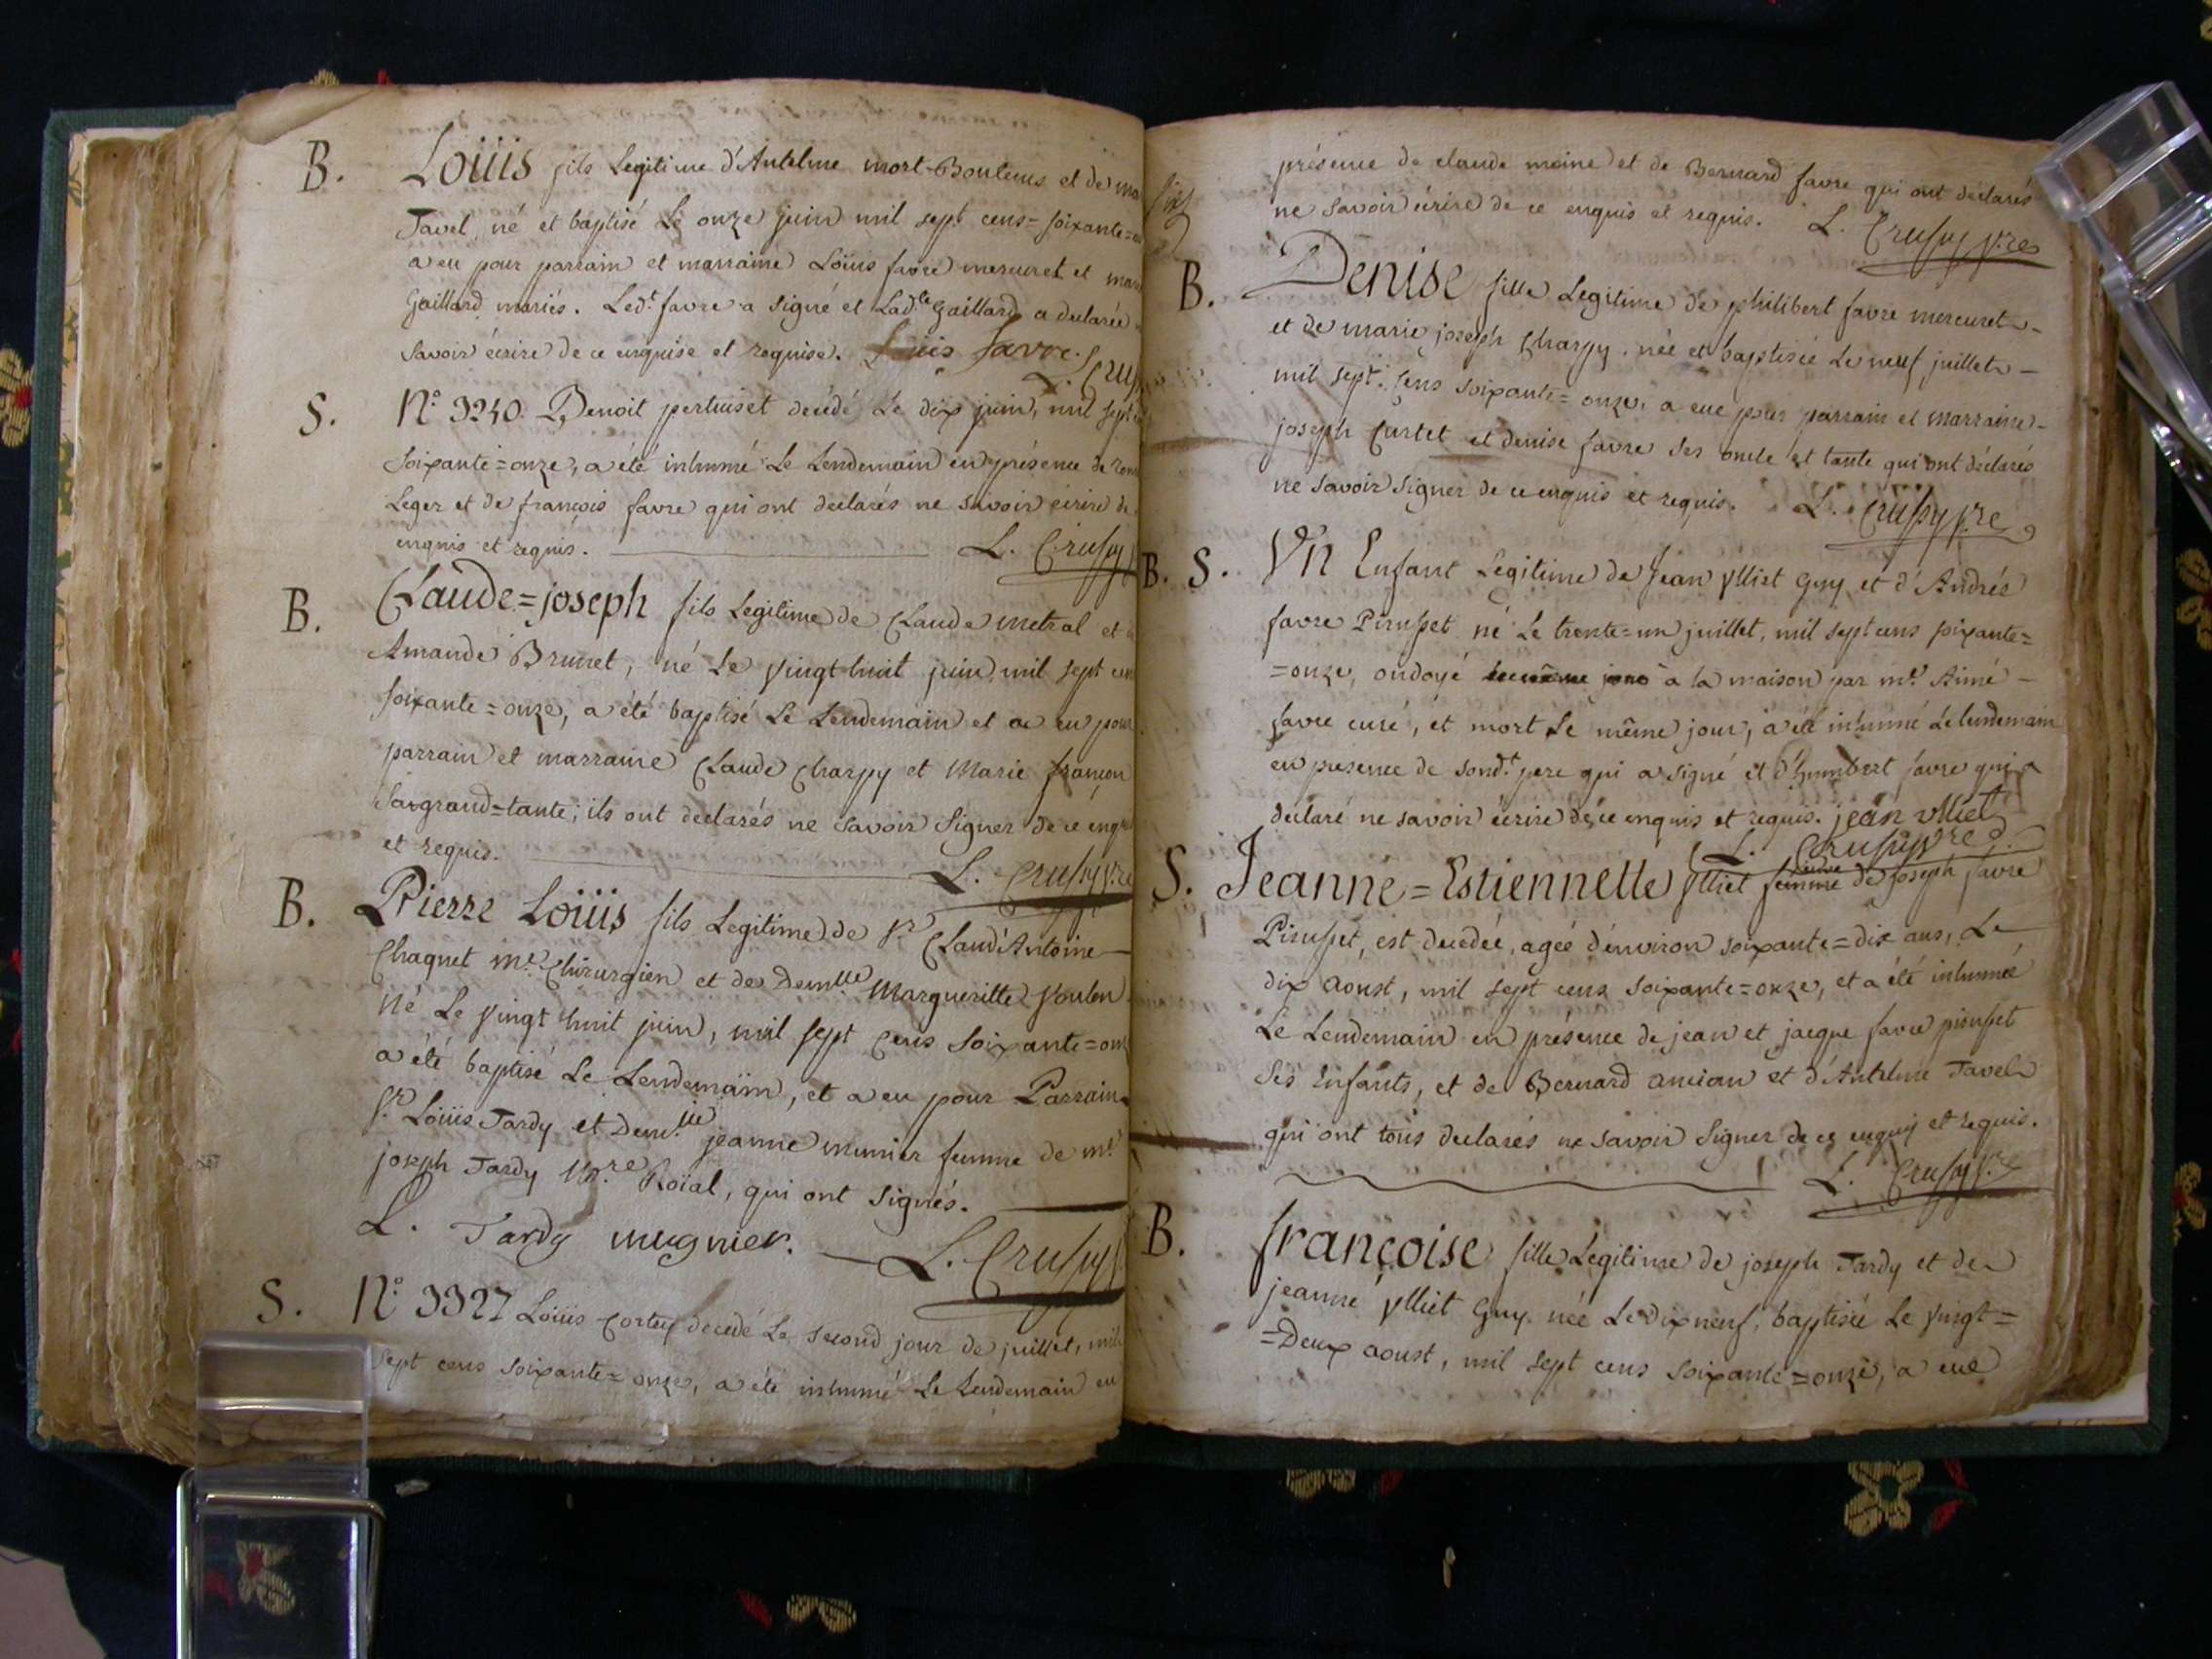 B. Loüis fils Legitime d'Antelme mort-Bontems et de
Tavel, né et baptisé Le onze juin mil sept cens=soixante=
a eu pour parrain et marraine Loüis favre mercuret et
Gaillard mariés. Led.t favre a signé et Lad.te Gaillard a declarée
savoir écrire de ce enquise et requise. Loüis favre.
L. Crus
S. N.o 3240. Benoit pertuiset decédé Le dix juin, mil sept
soixante=onze, a été inhumé Le Lendemain en présence de
Leger et de françois favre qui ont declarés ne savoir écrire de
enquis et requis. L. Crusy
B. Claude=joseph fils Legitime de Claude metral et
Amande Brunet, né Le vingt huit juin, mil sept cens
soixante=onze, a été baptisé Le Lendemain et a eu pour
parrain et marraine Claude Charpy et Marie françon
sa grand=tante; ils ont declarés ne savoir signer de ce enq
et requis. L. Crusy p.re
B. Pierre Loüis fils Legitime de S.r Claud'Antoine
Chaquet m.e Chirurgien et de Dem.lle Margueritte
né Le vingt huit juin, mil sept cens soixante=on
a été baptisé Le Lendemain, et a eu pour Parrain
S.r Loüis Tardy et Dem.lle jeanne munier femme de m.e
joseph Tardy N.re Roïal, qui ont signés.
L. Tardy mugnier. L. Crusy
S. N.o 3327 Loüis decédé Le second jour de juillet, mil
sept cens soixante=onze, a été inhumé Le Lendemain en
présence de claude moine et de Bernard favre qui ont declarés
ne savoir écrire de ce enquis et requis. L. Crusy p.re
B. Denise fille Legitime de philibert favre mercuret
et de marie joseph Charpy. née et baptisée Le neuf juillet
mil sept cens soixante=onze, a eue pour parrain et marraine
joseph Curtet et denise favre ses oncle et tante qui ont déclarés
ne savoir signer de ce enquis et requis. L. Crusy p.re
B. S. Vn Enfant Legitime de Jean ylliet Guy et d'Andrée
favre Pirusset né Le trente=un juillet, mil sept cens soixante=
=onze, ondoyé à la maison par m.e Aimé
favre curé, et mort Le même jour, a été inhumé Le lendemain
en présence de sond.t pere qui a signé et d'humbert favre qui a
declaré ne savoir écrire de ce enquis et requis. jean ylliet
L. Crusy p.re
S. Jeanne=Estiennette ylliet veuve de Joseph favre
Pirusset, est decedée, ageé d'environ soixante=dix ans, Le
dix Aoust, mil sept cens soixante=onze, et a été inhumée
Le Lendemain en présence de jean et jacque favre pirusset
ses Enfants, et de Bernard ancian et d'Antelme Tavel
qui ont tous declarés ne savoir signer de ce enquis et requis.
L. Crusy p.re
B. françoise fille Legitime de joseph Tardy et de
jeanne ylliet Guy. née Le dix neuf, baptisée Le vingt=
=Deux aoust, mil sept cens soixante=onze, a eue